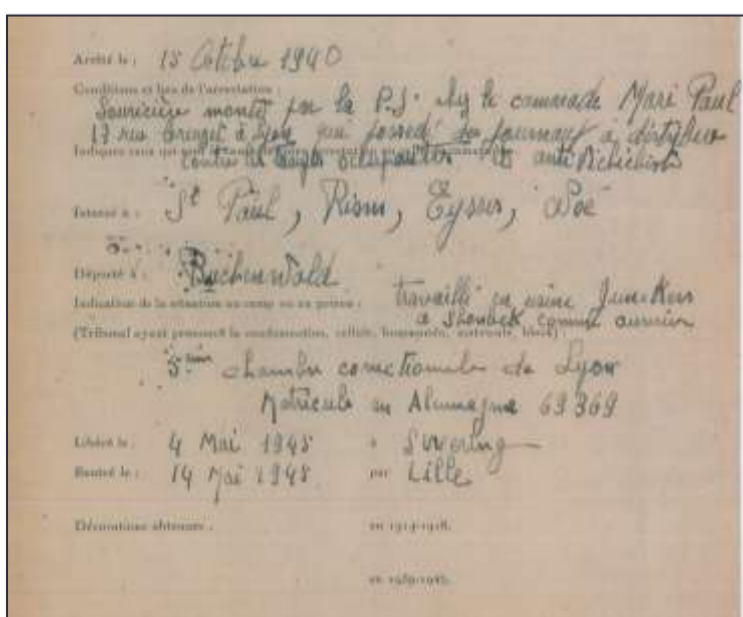 Arrêté le : 15 Octobre 1940
Conditions et lieu de l'arrestation :
Souricière monté par la P.J. chez le camarade Mari Paul
17 rue à Lyon qui possedé des journaux à distribuer
Indiquez ceux qui ont
contre les troupes occupantes et anti
Interné à : St Paul, Riom, Eysses, Noé
Déporté à : Buchenwald
Indication de la situation au camp ou en prison : travaillé en usine Junckers
a Shonbeck comme ouvrier
(Tribunal ayant prononcé la condamnation, cellule, kommando, matricule, block) :
5ème chambre correctionnelle de Lyon
Matricule en Allemagne 69369
Libéré le : 4 Mai 1945 à Swering
Rentré le : 14 Mai 1945 par Lille
Décorations obtenues : en 1914-1918.
en 1939-1945.